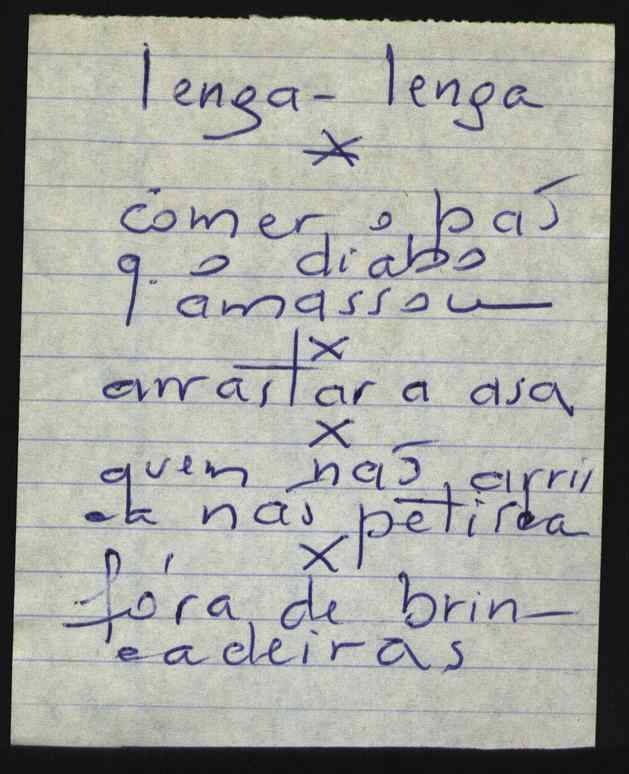 lenga-lenga
x
comer o pão
q. o diabo
amassou—
x
arrastar a asa
x
quem não arris
ca não petisca
x
fóra de brin-
cadeiras